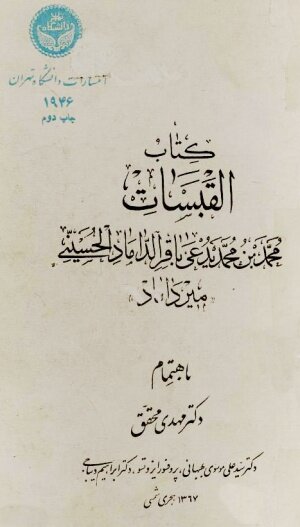 انتشارات دانشگاه تهران
۱۹۴۶
چاپ دوم
کتاب
القبسات
محمد بن محمد یدعی باقر الداماد الحسینی
«میرداماد»
باهتمام
دکتر مهدی محقق
دکتر سید علی موسوی بهبهانی، پروفسور ایزوتسو، دکتر ابراهیم دیباجی
۱۳۶۷ هجری شمسی